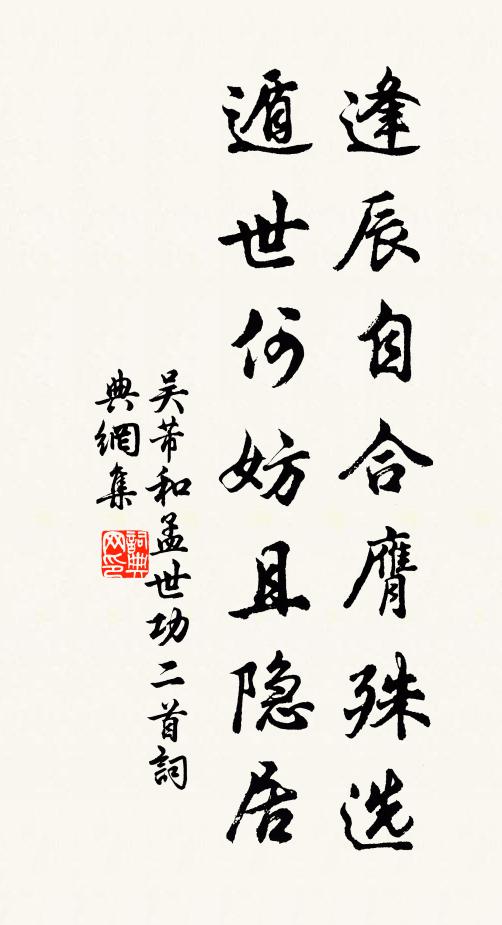 逢辰自合膺殊选
遁世何妨且隐居
吴芾和孟世功二首詞
典網集
詞典
网印